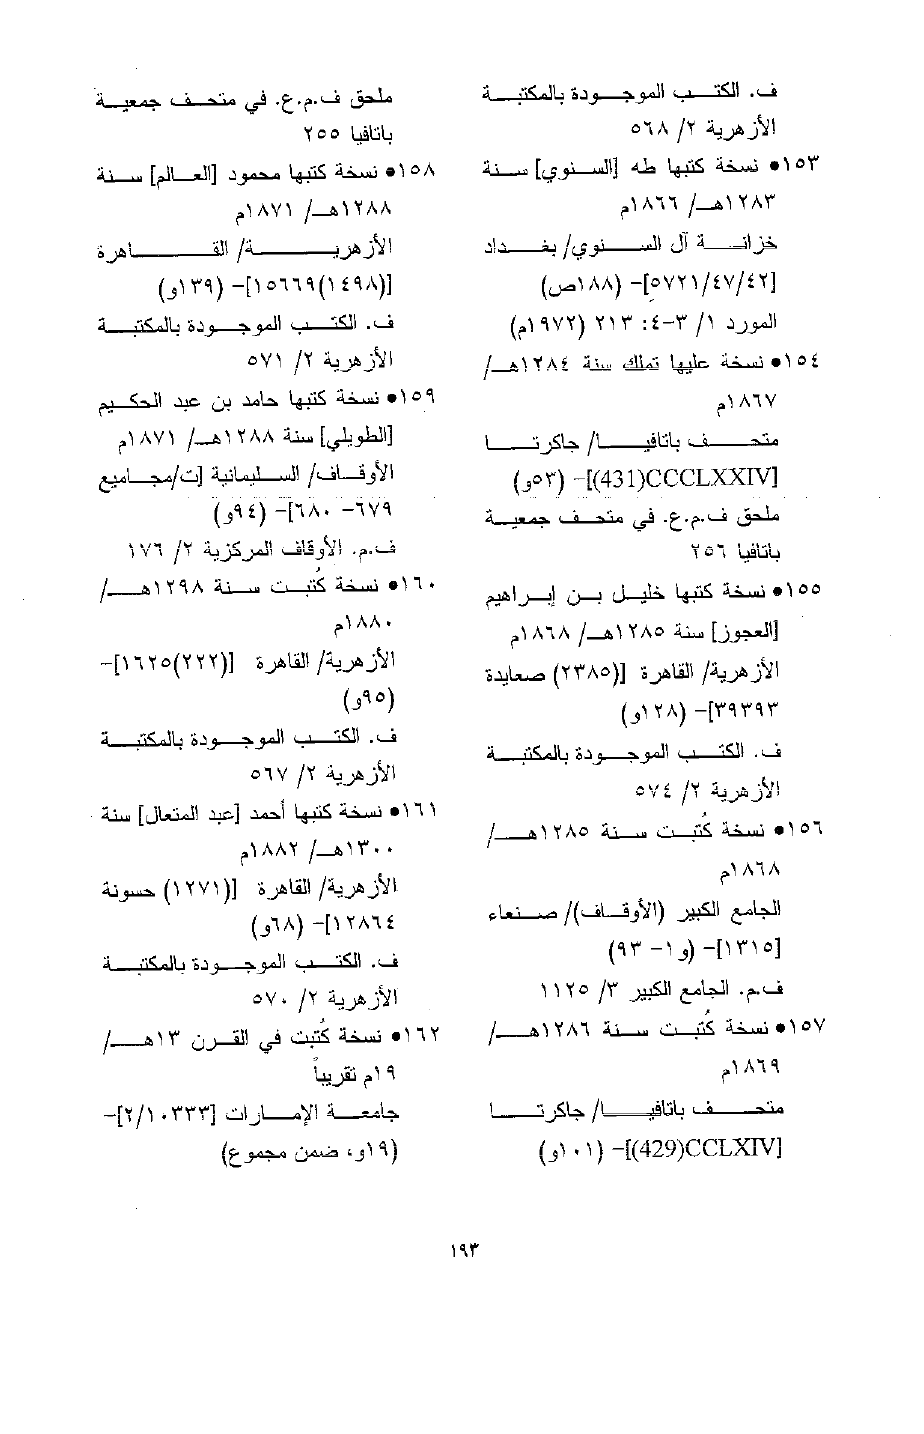 ف. الكتب الموجودة بالمكتبة
الأزهرية ٢/ ٥٦٨
١٥٣• نسخة كتبها طه [السنوي] سنة
١٢٨٣هـ/ ١٨٦٦م
خزانة آل السنوي/ بغداد
[٥٧٢١/٤٧/٤٢]- (١٨٨ص)
المورد ١/ ٣-٤: ٢١٣ (١٩٧٢م)
١٥٤• نسخة عليها تملك سنة ١٢٨٤هـ/
١٨٦٧م
متحف باتافيا/ جاكرتا
[CCCLXXIV(431)]- (٥٣و)
ملحق ف.م.ع. في متحف جمعية
باتافيا ٢٥٦
١٥٥• نسخة كتبها خليل بن إبراهيم
[العجوز] سنة ١٢٨٥هـ/ ١٨٦٨م
الأزهرية/ القاهرة [(٢٣٨٥) صعايدة
٣٩٣٩٣]- (١٢٨و)
ف. الكتب الموجودة بالمكتبة
الأزهرية ٢/ ٥٧٤
١٥٦• نسخة كُتبت سنة ١٢٨٥هـ/
١٨٦٨م
الجامع الكبير (الأوقاف)/ صنعاء
[١٣١٥]- (و١- ٩٣)
ف.م. الجامع الكبير ٣/ ١١٢٥
١٥٧• نسخة كُتبت سنة ١٢٨٦هـ/
١٨٦٩م
متحف باتافيا/ جاكرتا
[CCLXIV(429)]- (١٠١و)
ملحق ف.م.ع. في متحف جمعية
باتافيا ٢٥٥
١٥٨• نسخة كتبها محمود [العالم] سنة
١٢٨٨هـ/ ١٨٧١م
الأزهرية/ القاهرة
[(١٤٩٨)١٥٦٦٩]- (١٣٩و)
ف. الكتب الموجودة بالمكتبة
الأزهرية ٢/ ٥٧١
١٥٩• نسخة كتبها حامد بن عبد الحكيم
[الطويلي] سنة ١٢٨٨هـ/ ١٨٧١م
الأوقاف/ السليمانية [ت/مجاميع
٦٧٩- ٦٨٠]- (٩٤و)
ف.م. الأوقاف المركزية ٢/ ١٧٦
١٦٠• نسخة كُتبت سنة ١٢٩٨هـ/
١٨٨٠م
الأزهرية/ القاهرة [(٢٢٢)١٦٢٥]-
(٩٥و)
ف. الكتب الموجودة بالمكتبة
الأزهرية ٢/ ٥٦٧
١٦١• نسخة كتبها أحمد [عبد المتعال] سنة
١٣٠٠هـ/ ١٨٨٢م
الأزهرية/ القاهرة [(١٢٧١) حسونة
١٢٨٦٤]- (٦٨و)
ف. الكتب الموجودة بالمكتبة
الأزهرية ٢/ ٥٧٠
١٦٢• نسخة كُتبت في القرن ١٣هـ/
١٩م تقريباً
جامعة الإمارات [٢/١٠٣٣٣]-
(١٩و، ضمن مجموع)
١٩٣